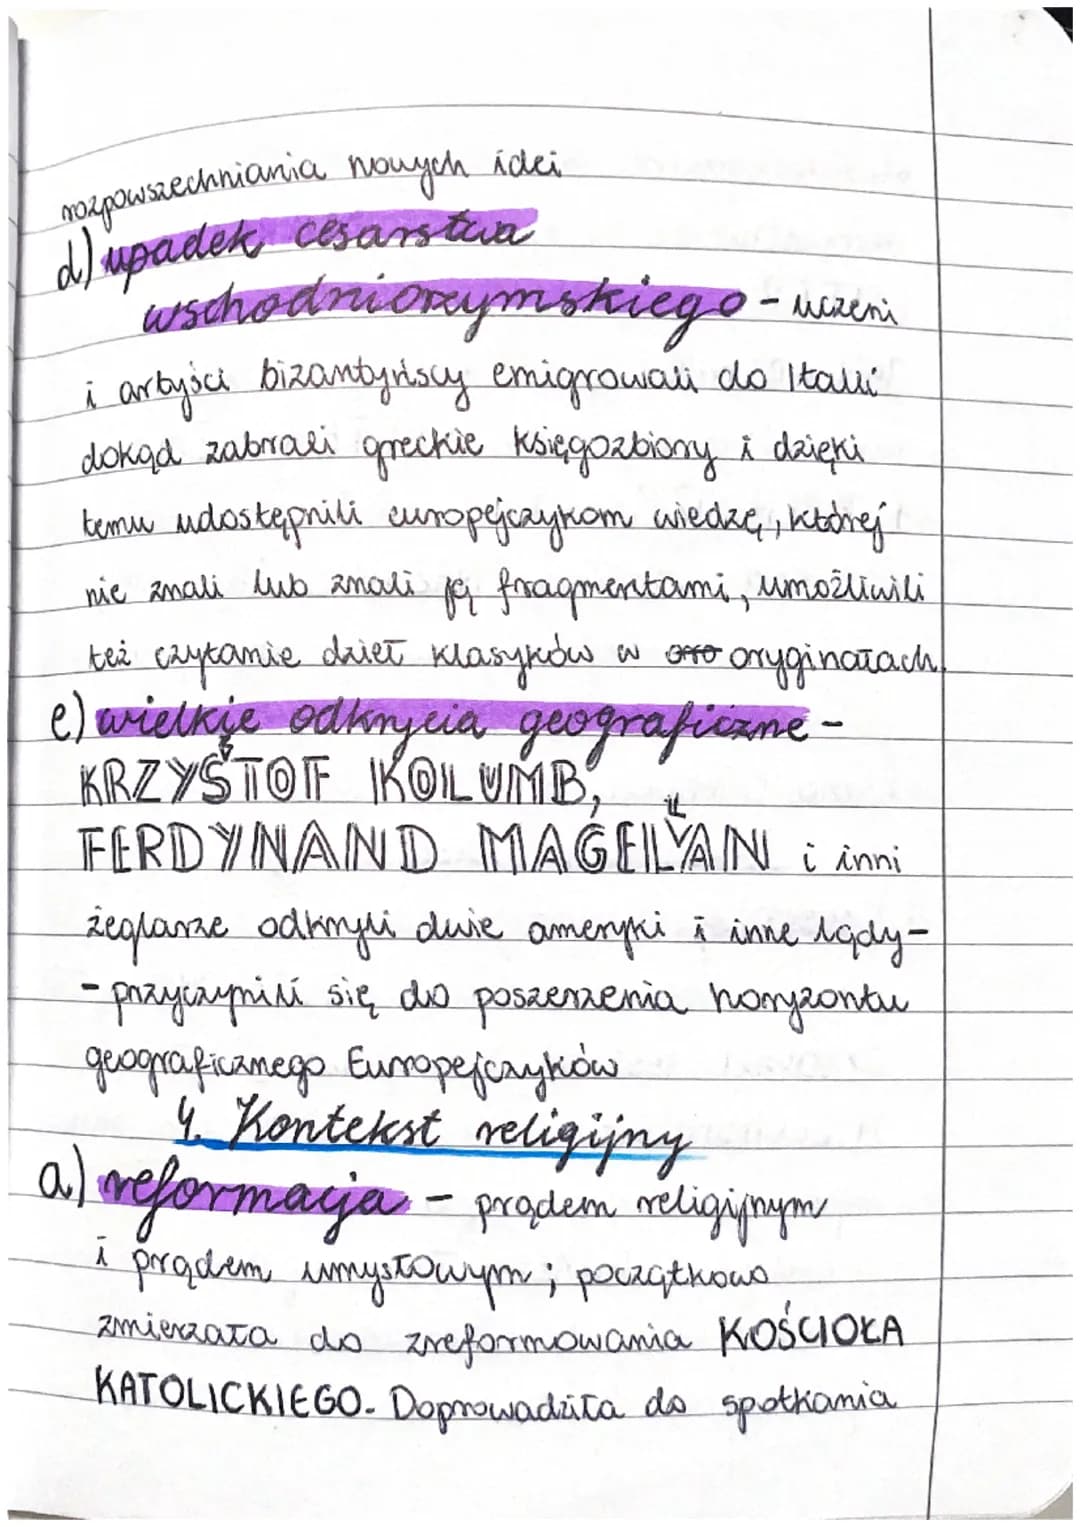 rozpowszechniania nowych idei
d) upadek cesarstwa
wschodniorzymskiego - uczeni
i artyści bizantyńscy emigrowali do Italii
dokąd zabrali greckie księgozbiory i dzięki
temu udostępnili europejczykom wiedzę, której
nie znali lub znali ją fragmentami, umożliwili
też czytanie dzieł klasyków w oryginałach.
e) wielkie odkrycia geograficzne -
KRZYSTOF KOLUMB,
FERDYNAND MAGELAN i inni
żeglarze odkryli dwie ameryki i inne lądy-
- przyczynili się do poszerzenia horyzontu
geograficznego Europejczyków
4. Kontekst religijny
a) reformacja - prądem religijnym
i prądem umysłowym; początkowo
zmierzała do zreformowania KOŚCIOŁA
KATOLICKIEGO. Doprowadziła do spotkania